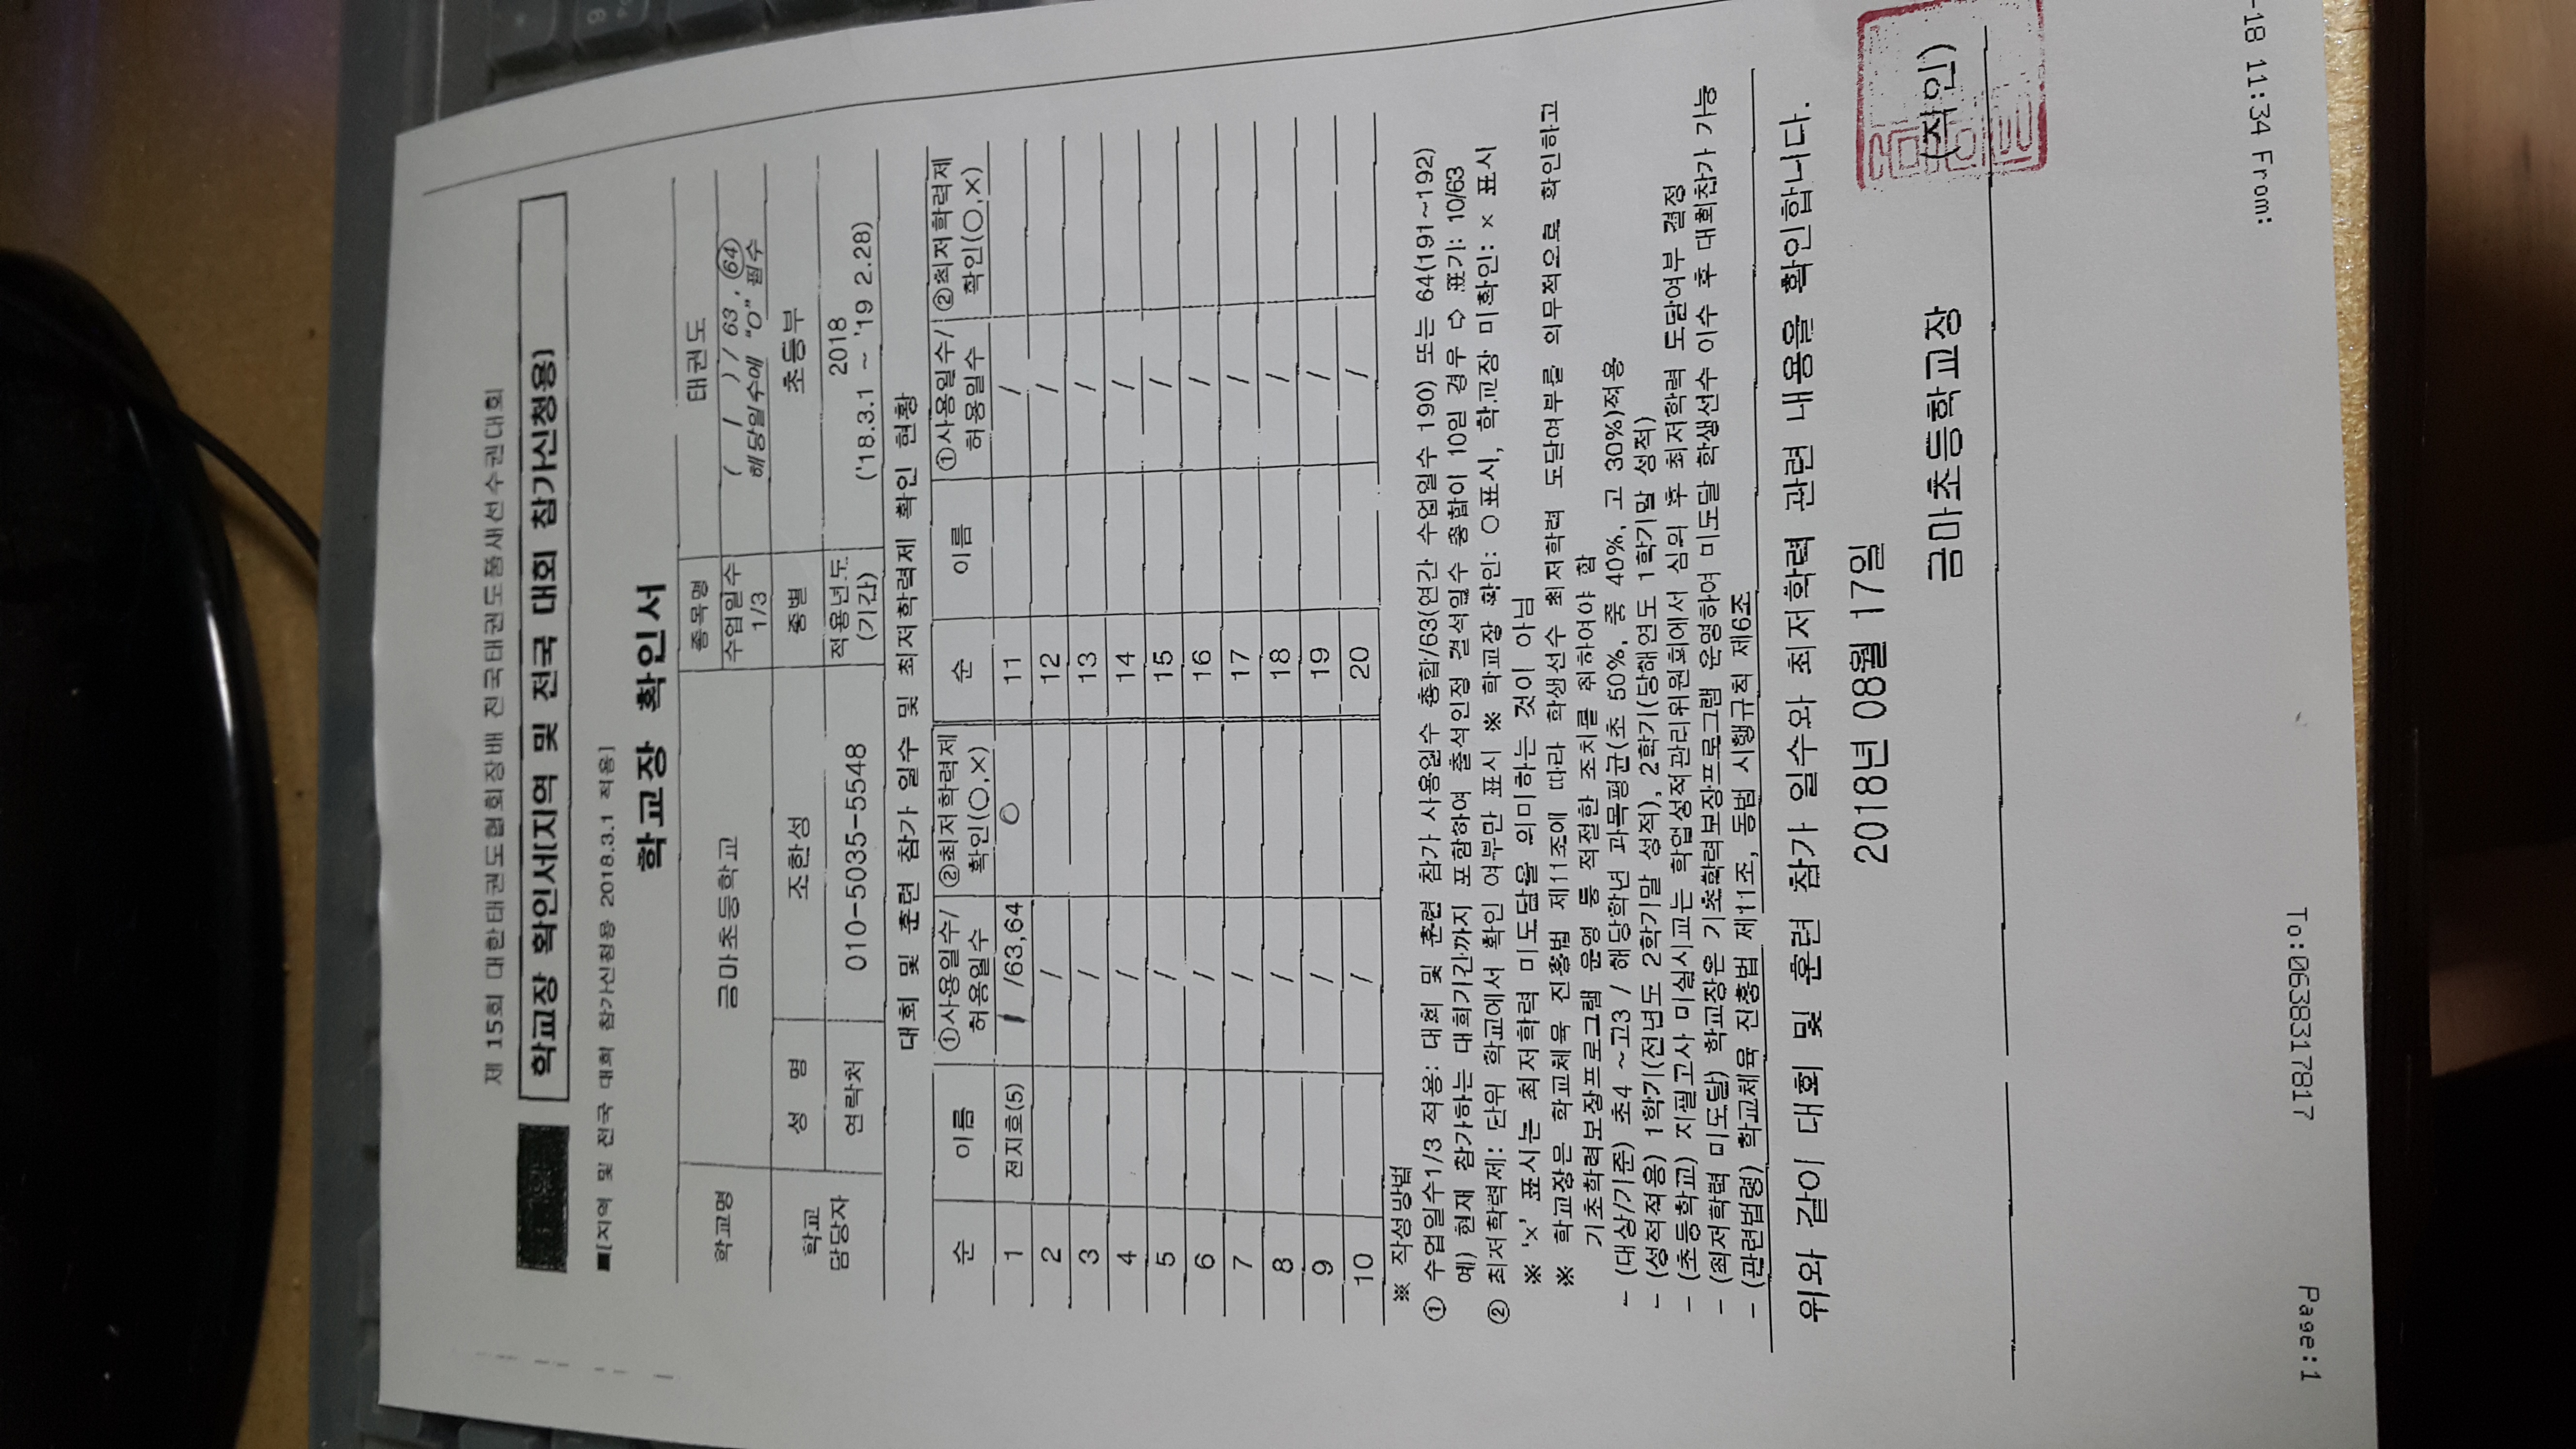 제 15회 대한태권도협회장배 전국태권도품새선수권대회
학교장 확인서[지역 및 전국 대회 참가신청용]
■[지역 및 전국 대회 참가신청용 2018.3.1 적용]
학교장 확인서
학교명 금마초등학교 종목명 태권도
수업일수 1/3 ( 1 ) / 63 , 64
해당일수에 "O" 필수
학교 담당자 성 명 조한성 종별 초등부
연락처 010-5035-5548 적용년도 (기간) 2018 ('18.3.1 ~ '19 2.28)
대회 및 훈련 참가 일수 및 최저학력제 확인 현황
순 이름 ①사용일수/허용일수 ②최저학력제 확인(○,×) 순 이름 ①사용일수/허용일수 ②최저학력제 확인(○,×)
1 전지호(5) 1 /63,64 ○ 11 /
2 / 12 /
3 / 13 /
4 / 14 /
5 / 15 /
6 / 16 /
7 / 17 /
8 / 18 /
9 / 19 /
10 / 20 /
※ 작성방법
① 수업일수1/3 적용: 대회 및 훈련 참가 사용일수 총합/63(연간 수업일수 190) 또는 64(191~192)
예) 현재 참가하는 대회기간까지 포함하여 출석인정 결석일수 총합이 10일 경우 ⇨ 표기: 10/63
② 최저학력제: 단위 학교에서 확인 여부만 표시 ※ 학교장 확인: ○표시, 학교장 미확인: × 표시
※ '×' 표시는 최저학력 미도달을 의미하는 것이 아님
※ 학교장은 학교체육 진흥법 제11조에 따라 학생선수 최저학력 도달여부를 의무적으로 확인하고
기초학력보장프로그램 운영 등 적절한 조치를 취하여야 함
- (대상/기준) 초4 ~고3 / 해당학년 과목평균(초 50%, 중 40%, 고 30%)적용
- (성적적용) 1학기(전년도 2학기말 성적), 2학기(당해연도 1학기말 성적)
- (초등학교) 지필고사 미실시교는 학업성적관리위원회에서 심의 후 최저학력 도달여부 결정
- (최저학력 미도달) 학교장은 기초학력보장프로그램 운영하여 미도달 학생선수 이수 후 대회참가 가능
- (관련법령) 학교체육 진흥법 제11조, 동법 시행규칙 제6조
위와 같이 대회 및 훈련 참가 일수와 최저학력 관련 내용을 확인합니다.
2018년 08월 17일
금마초등학교장 (직인)
-18 11:34 From:
To:0638317817
Page:1